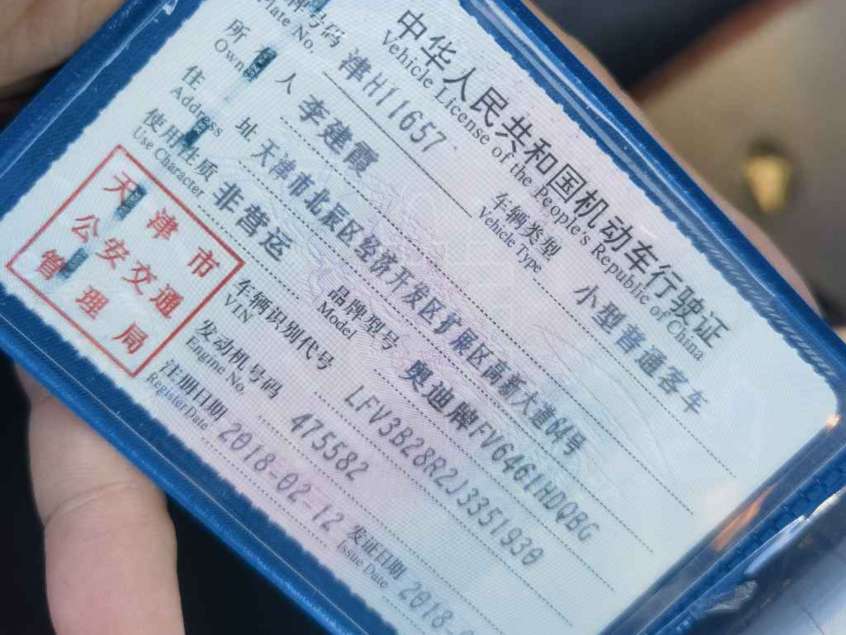 中华人民共和国机动车行驶证
Vehicle License of the People's Republic of China
号码 津H11657 车辆类型 小型普通客车
Plate No. Vehicle Type
所有人 李建霞
Owner
住址 天津市北辰区经济开发区扩展区高新大道64号
Address
使用性质 非营运 品牌型号 奥迪牌FV6461HDQBG
Use Character Model
天津市
公安交通
管理局
车辆识别代号 LFV3B28R2J3351930
VIN
发动机号码 475582
Engine No.
注册日期 2018-02-12 发证日期 2018-
Register Date Issue Date